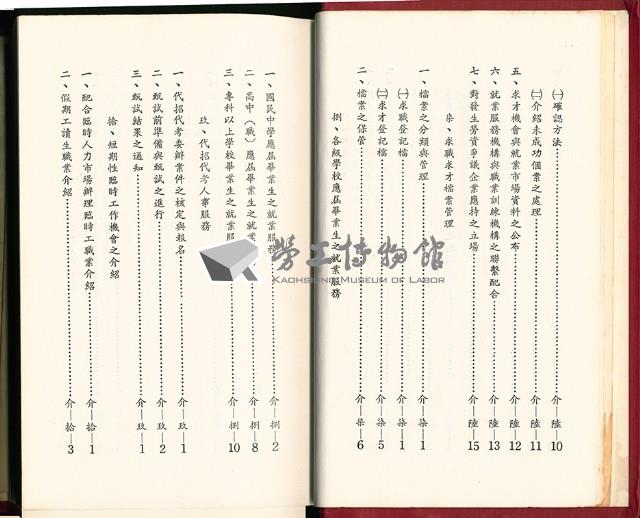 ㈠確認方法……介—陸—10
㈡介紹未成功個案之處理……介—陸—11
五、求才機會與就業市場資料之公布……介—陸—12
六、就業服務機構與職業訓練機構之聯繫配合……介—陸—13
七、對發生勞資爭議企業應持之立場……介—陸—15
柒、求職求才檔案管理
一、檔案之分類與管理……介—柒—1
㈠求職登記檔……介—柒—1
㈡求才登記檔……介—柒—5
二、檔案之保管……介—柒—6
捌、各級學校應屆畢業生之就業服務
一、國民中學應屆畢業生之就業服務……介—捌—2
二、高中（職）應屆畢業生之就業……介—捌—8
三、專科以上學校畢業生之就業服……介—捌—10
玖、代招代考人事服務
一、代招代考委辦案件之核定與報名……介—玖—1
二、甄試前準備與甄試之進行……介—玖—2
三、甄試結果之通知……介—玖—1
拾、短期性臨時工作機會之介紹
一、配合臨時人力市場辦理臨時工職業介紹……介—拾—1
二、假期工讀生職業介紹……介—拾—3
勞工博物館
KAOHSIUNG MUSEUM OF LABOR